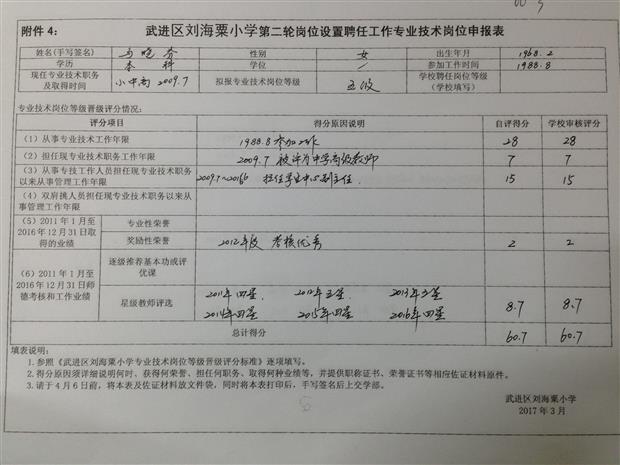 附件 4：
武进区刘海粟小学第二轮岗位设置聘任工作专业技术岗位申报表
姓名(手写签名) 性别 女 出生年月 1968.2
学历 本科 学位 / 参加工作时间 1988.8
现任专业技术职务及取得时间 小中高 2009.7 拟报专业技术岗位等级 五级 学校聘任岗位等级（学校填写）
专业技术岗位等级晋级评分情况：
评分项目 得分原因说明 自评得分 学校审核评分
（1）从事专业技术工作年限 1988.8参加工作 28 28
（2）担任现专业技术职务工作年限 2009.7 被评为中学高级教师 7 7
（3）从事专技工作人员担任现专业技术职务以来从事管理工作年限 2009.7~2016.6 担任学生中心副主任. 15 15
（4）双肩挑人员担任现专业技术职务以来从事管理工作年限
（5）2011 年 1 月至 2016 年 12 月 31 日取得的业绩
专业性荣誉
奖励性荣誉 2012年度 考核优秀 2 2
（6）2011 年 1 月至 2016 年 12 月 31 日师德考核和工作业绩
逐级推荐基本功或评优课
星级教师评选 2011年四星. 2012年五星 2013年五星
2014年四星 2015年四星 2016年四星 8.7 8.7
总计得分 60.7 60.7
填表说明：
1. 参照《武进区刘海粟小学专业技术岗位等级晋级评分标准》逐项填写。
2. 得分原因须详细说明何时、获得何荣誉、担任何职务、取得何种业绩等，并提供职称证书、荣誉证书等相应佐证材料原件。
3. 请于 4 月 6 日前，将本表及佐证材料放文件袋，同时将本表打印后，手写签名后上交学部。
武进区刘海粟小学
2017 年 3 月